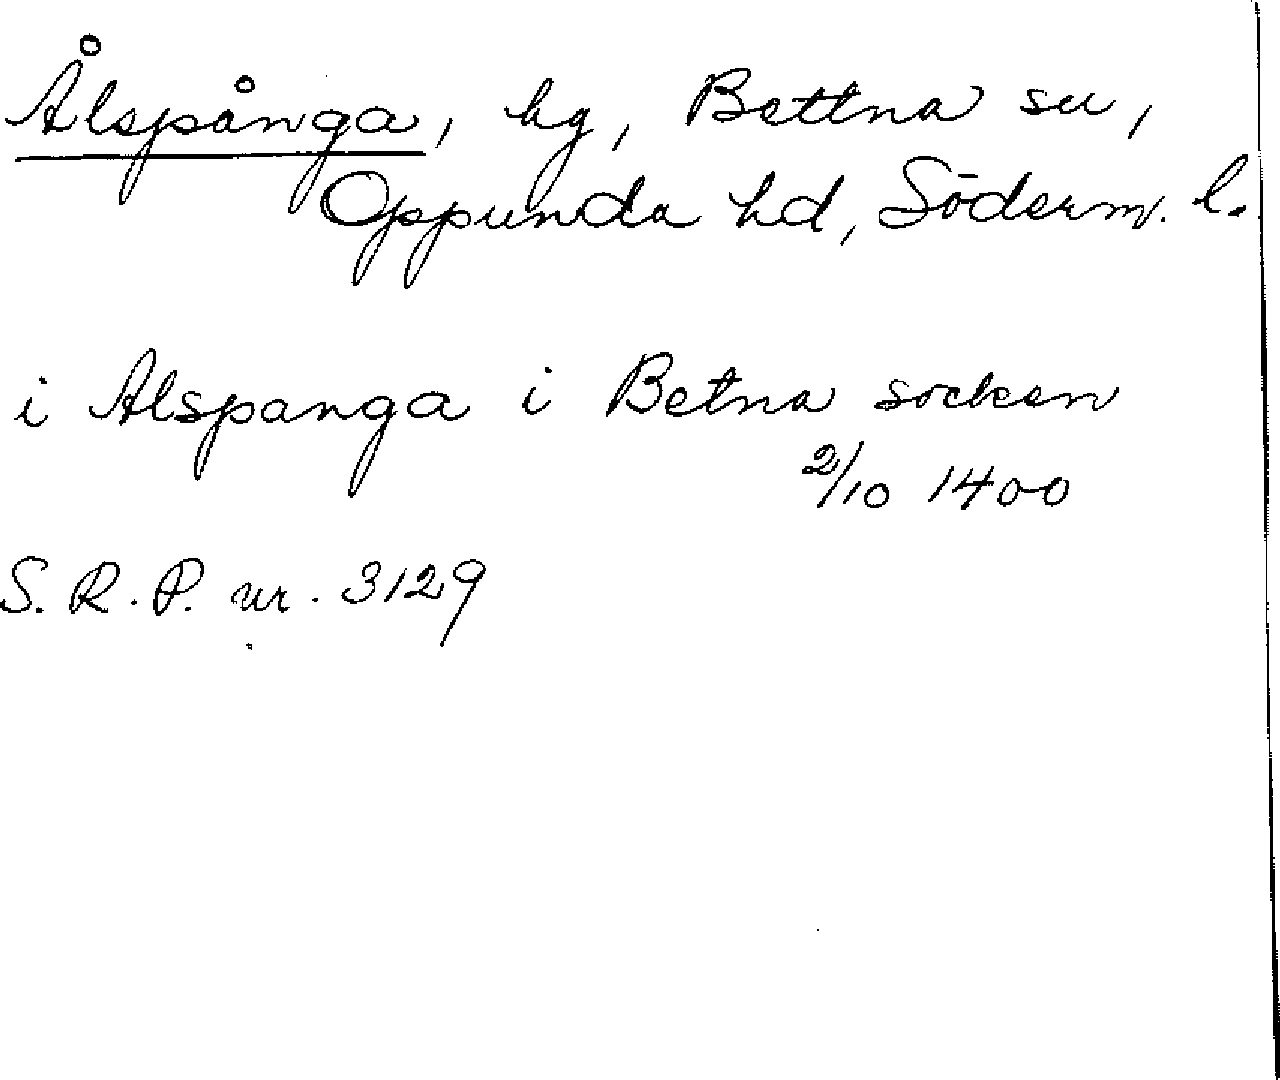 Ålspånga, hg, Bettna sn,
Oppunda hd, Söderm. l.
i Alspanga i Betna socken
2/10 1400
S. R. P. nr. 3129